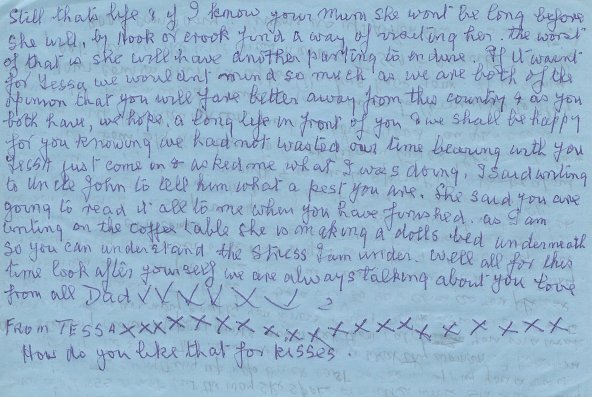 Still thats life & if I know your Mum she wont be long before
she will, by Hook or crook find a way of visiting her. the worst
of that is she will have another parting to endure. If it wasnt
for Tessa we wouldnt mind so much as we are both of the
opinion that you will fare better away from this country & as you
both have, we hope, a long life in front of you & we shall be happy
for you knowing we had not wasted our time bearing with you
Tessa just come in & asked me what I was doing, I said writing
to Uncle John to tell him what a pest you are. She said you are
going to read it all to me when you have finished. as I am
writing on the coffee table she is making a dolls bed underneath
so you can understand the stress I am under. Well all for this
time look after yourself we are always talking about you love
from all Dad
FROM TESSA XXXXXXXXXXXXXXXXXXXXXX
How do you like that for kisses.